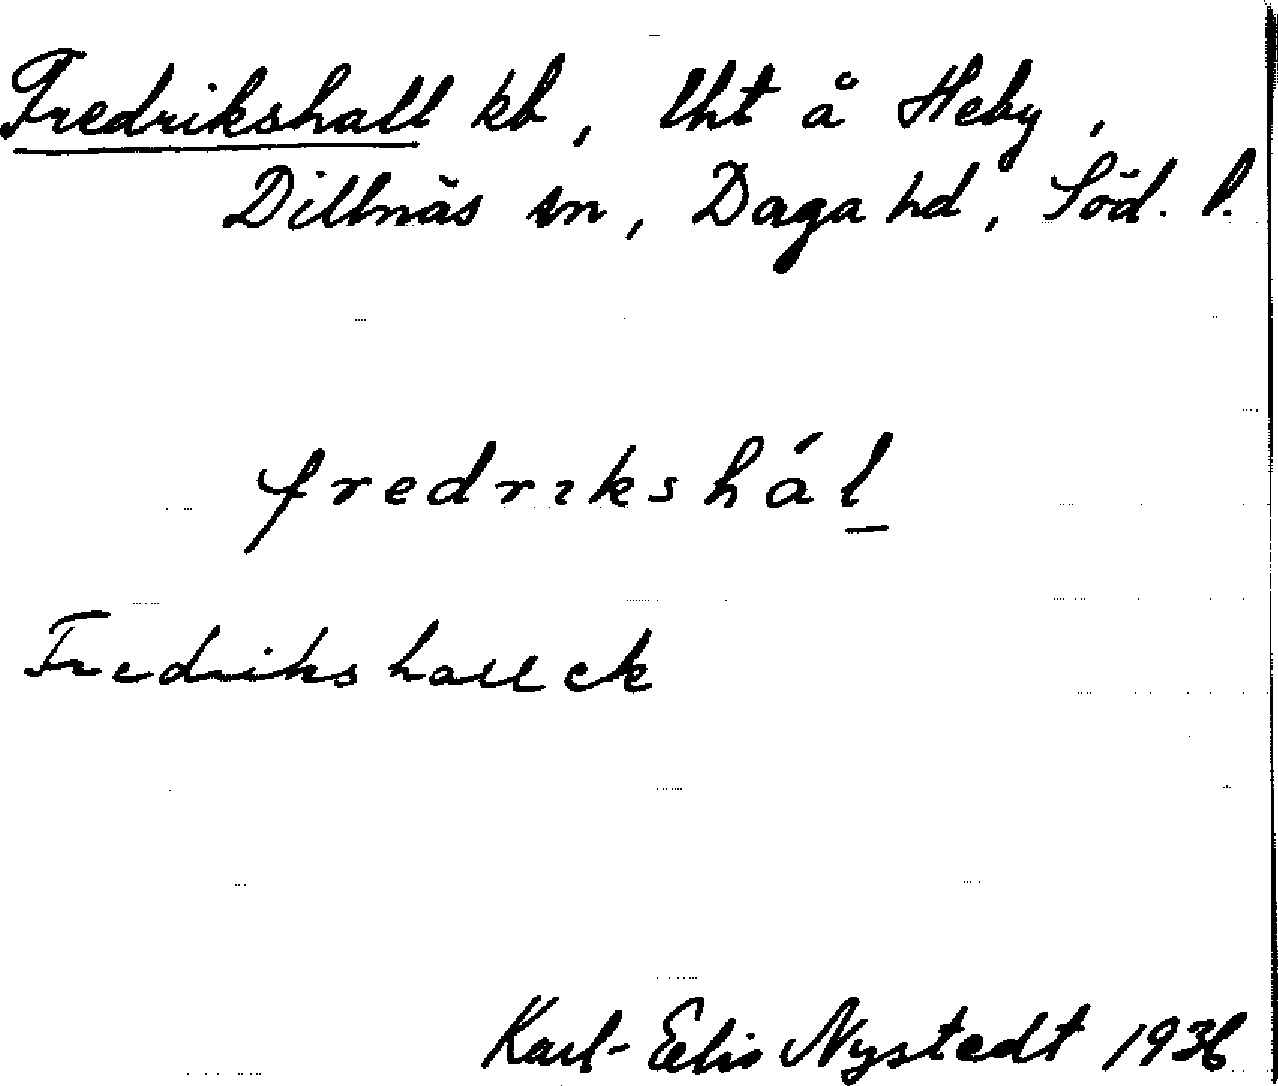 Fredrikshall kb, lht å Heby,
Dillnäs sn, Daga hd, Söd. l.
fredrikshál
Fredrikshall ek
Karl-Elis Nystedt 1936